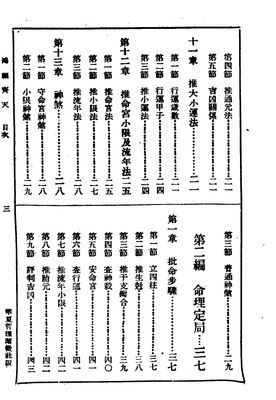 第四節 推通元法……二一
第五節 吉凶關係……二一
十一章 推大小運法……二一
第一節 行運歲數……二一
第二節 行運甲子……二四
第三節 推小運法……二四
第十二章 推命宮小限及流年法二五
第一節 推命宮法……二五
第二節 推小限法……二七
第三節 推流年法……二八
第十三章 神煞……二八
第一節 守命宮神煞……二八
第二節 小限神煞……二九
第三節 普通神煞……二九
第二編 命理定局…三七
第一章 批命步驟……三七
第一節 立四柱……三七
第二節 推生剋……三八
第三節 推干支衝合……三九
第四節 查神殺……四〇
第五節 安命宮……四一
第六節 查行運……四一
第七節 推流年小限……四二
第八節 推胎元……四二
第九節 評判吉凶……四三
淵海齊天 目次
三
華夏哲理闡微社版